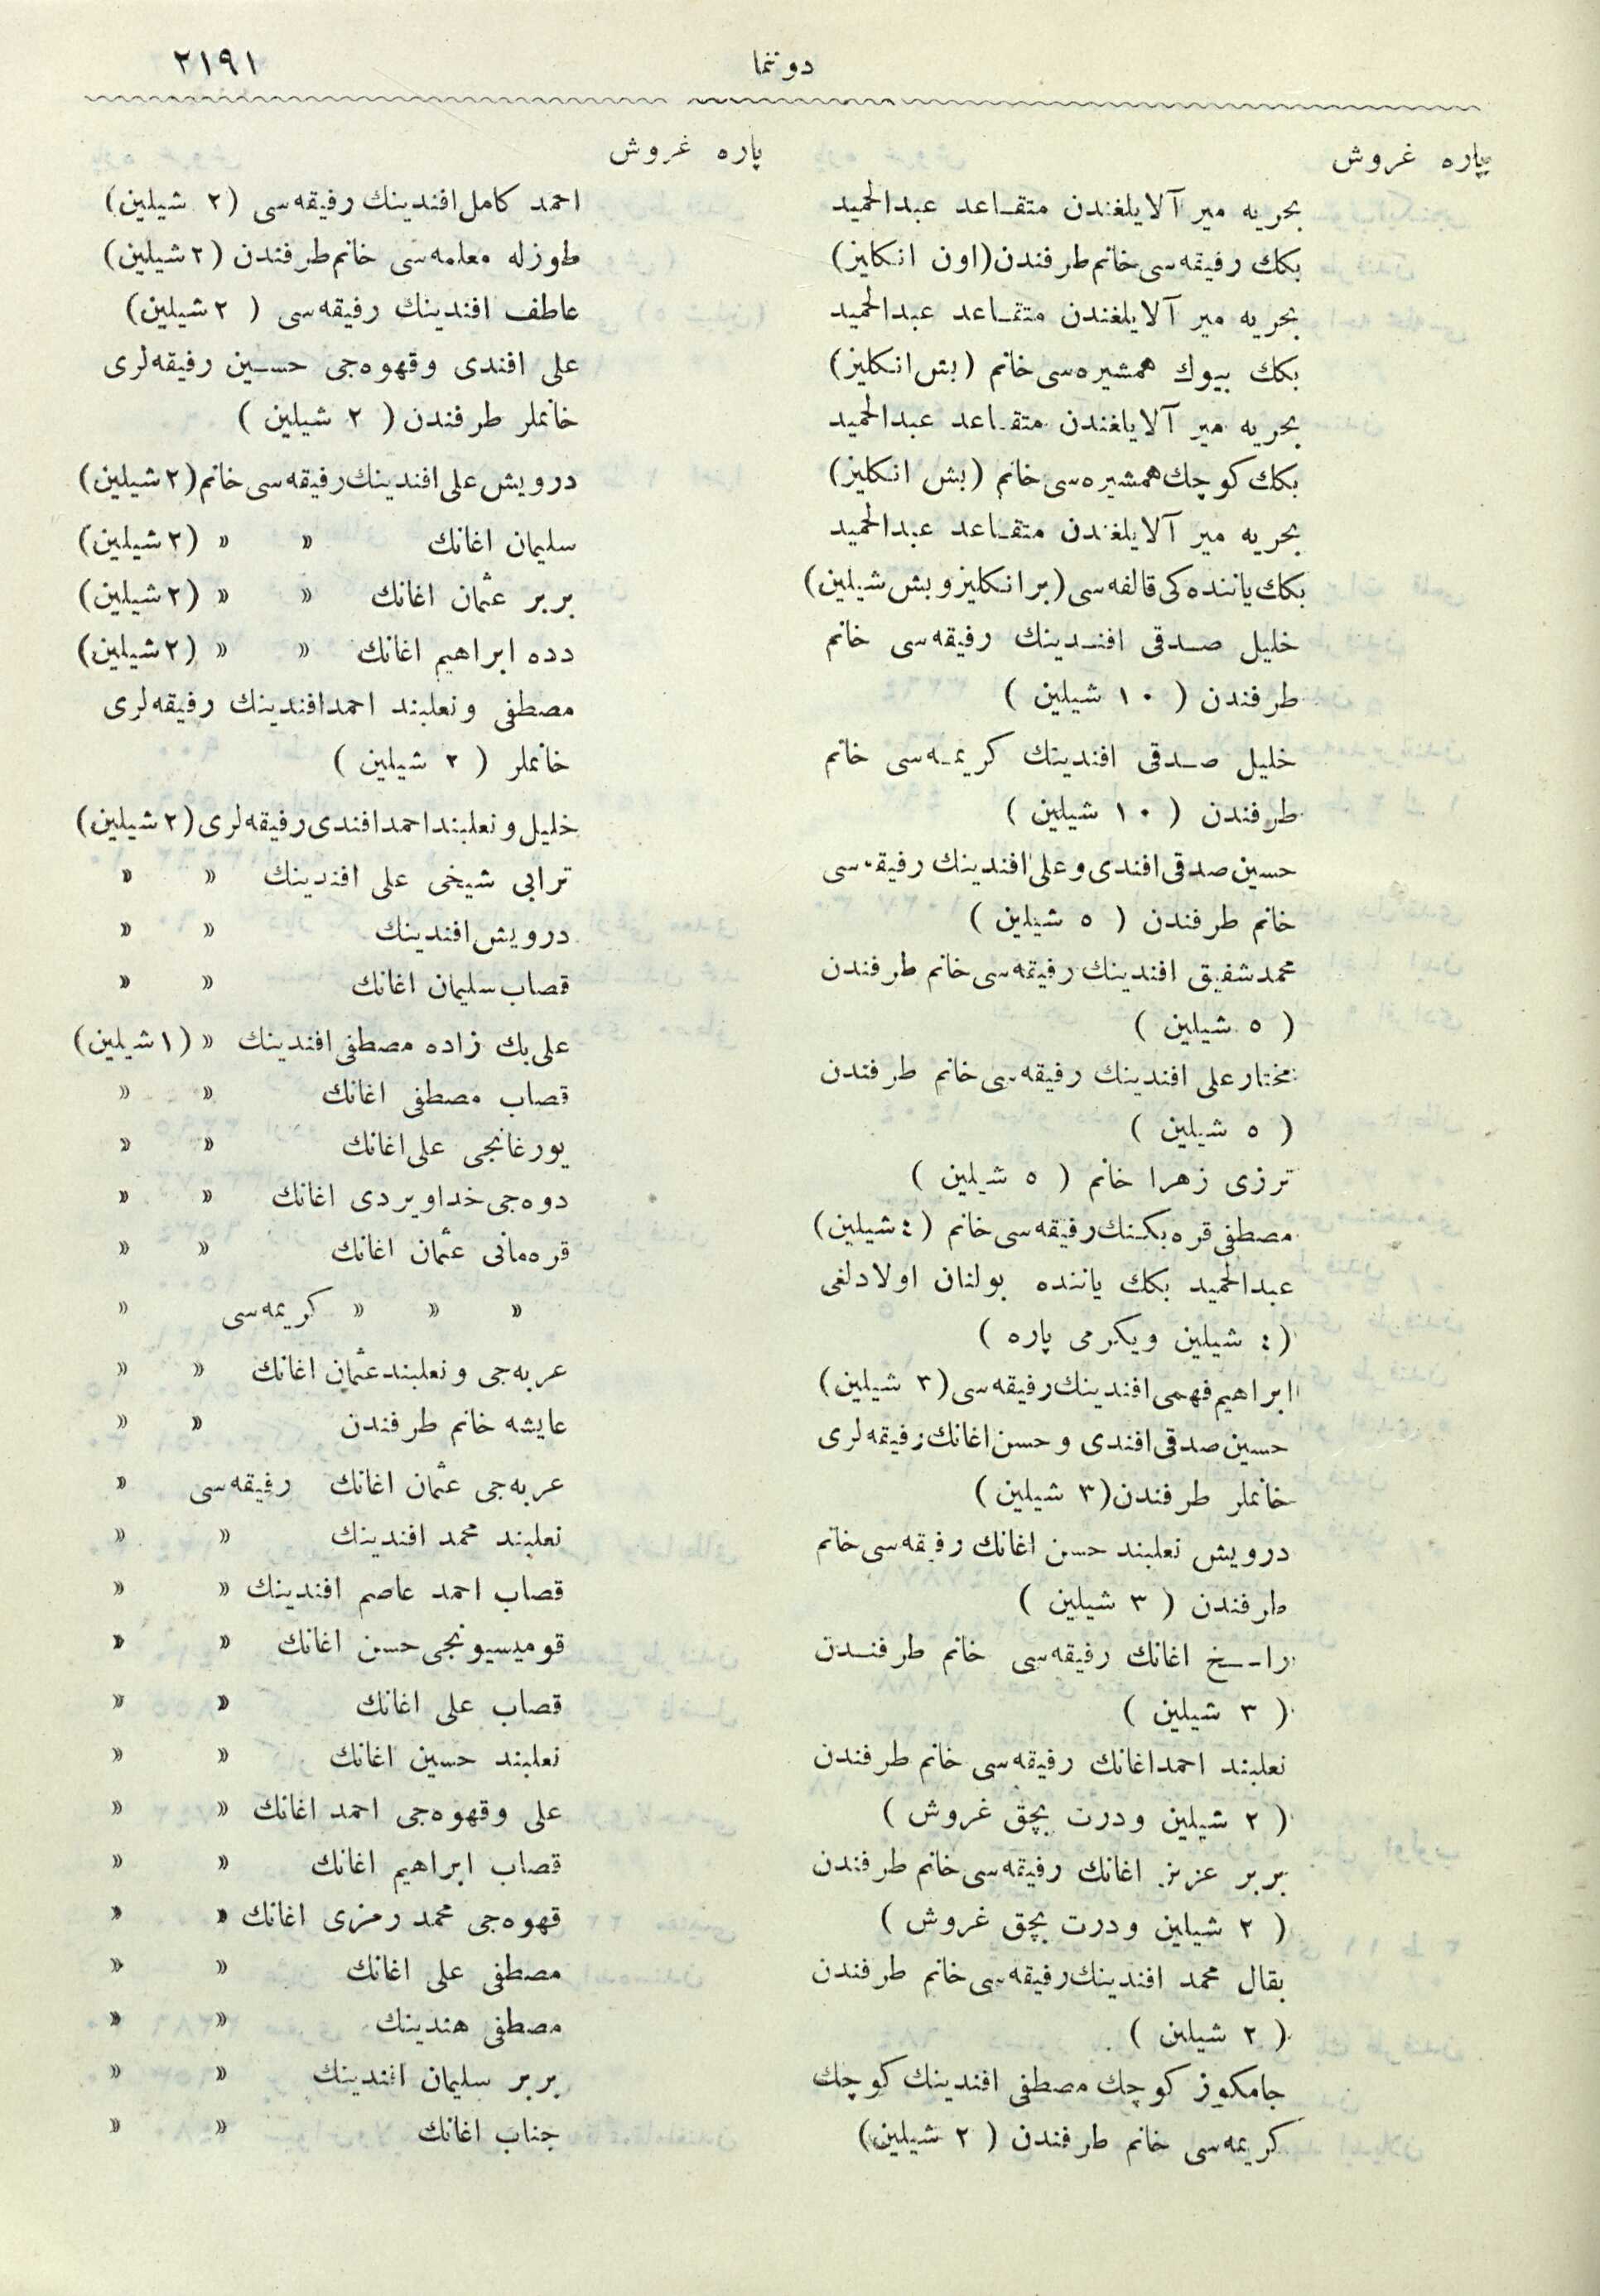 دوننما
٢١٩١
پاره غروش
بحريه مير آلايلغندن متقاعد عبدالحميد
بكك رفيقه‌سى خانم طرفندن (اون انكليز)
بحريه مير آلايلغندن متقاعد عبدالحميد
بكك بيوك همشيره‌سى خانم (بش انكليز)
بحريه مير آلايلغندن متقاعد عبدالحميد
بكك كوچك همشيره‌سى خانم (بش انكليز)
بحريه مير آلايلغندن متقاعد عبدالحميد
بكك ياننده‌كى قالفه‌سى (بر انكليز و بش شيلين)
خليل صدقى افندينك رفيقه‌سى خانم
طرفندن ( ١٠ شيلين )
خليل صدقى افندينك كريمه‌سى خانم
طرفندن ( ١٠ شيلين )
حسين صدقى افندى و على افندينك رفيقه‌سى
خانم طرفندن ( ٥ شيلين )
محمد شفيق افندينك رفيقه‌سى خانم طرفندن
( ٥ شيلين )
مختار على افندينك رفيقه‌سى خانم طرفندن
( ٥ شيلين )
ترزى زهرا خانم ( ٥ شيلين )
مصطفى قره بكنك رفيقه‌سى خانم (٤ شيلين)
عبدالحميد بكك ياننده بولنان اولادلغى
(٤ شيلين ويكرمى پاره )
ابراهيم فهمى افندينك رفيقه‌سى (٣ شيلين)
حسين صدقى افندى و حسن اغانك رفيقه‌لرى
خانملر طرفندن (٣ شيلين )
درويش نعلبند حسن اغانك رفيقه‌سى خانم
طرفندن ( ٣ شيلين )
اغانك رفيقه‌سى خانم طرفندن
( ٣ شيلين )
نعلبند احمد اغانك رفيقه‌سى خانم طرفندن
( ٢ شيلين ودرت بچق غروش )
بربر عزيز اغانك رفيقه‌سى خانم طرفندن
( ٢ شيلين ودرت بچق غروش )
بقال محمد افندينك رفيقه‌سى خانم طرفندن
( ٢ شيلين )
جامكوز كوچك مصطفى افندينك كوچك
كريمه‌سى خانم طرفندن ( ٢ شيلين)
پاره غروش
احمد كامل افندينك رفيقه‌سى (٢ شيلين)
طوزله معلمه‌سى خانم طرفندن (٢ شيلين)
عاطف افندينك رفيقه‌سى ( ٢ شيلين)
على افندى و قهوه‌جى حسين رفيقه‌لرى
خانملر طرفندن ( ٢ شيلين )
درويش على افندينك رفيقه‌سى خانم (٢ شيلين)
سليمان اغانك » » (٢ شيلين)
بربر عثمان اغانك » » (٢ شيلين)
دده ابراهيم اغانك » » (٢ شيلين)
مصطفى و نعلبند احمد افندينك رفيقه‌لرى
خانملر ( ٢ شيلين )
خليل و نعلبند احمد افندى رفيقه‌لرى (٢ شيلين)
ترابى شيخى على افندينك » »
درويش افندينك » »
قصاب سليمان اغانك » »
على بك زاده مصطفى افندينك » (١ شيلين)
قصاب مصطفى اغانك » »
يورغانجى على اغانك » »
دوه‌جى خداويردى اغانك » »
قره‌مانى عثمان اغانك » »
» » » كريمه‌سى »
عربه‌جى و نعلبند عثمان اغانك » »
عايشه خانم طرفندن » »
عربه‌جى عثمان اغانك رفيقه‌سى »
نعلبند محمد افندينك » »
قصاب احمد عاصم افندينك » »
قوميسيونجى حسن اغانك » »
قصاب على اغانك » »
نعلبند حسين اغانك » »
على و قهوه‌جى احمد اغانك » »
قصاب ابراهيم اغانك » »
قهوه‌جى محمد رمزى اغانك » »
مصطفى على اغانك » »
مصطفى هندينك » »
بربر سليمان افندينك » »
جناب اغانك » »